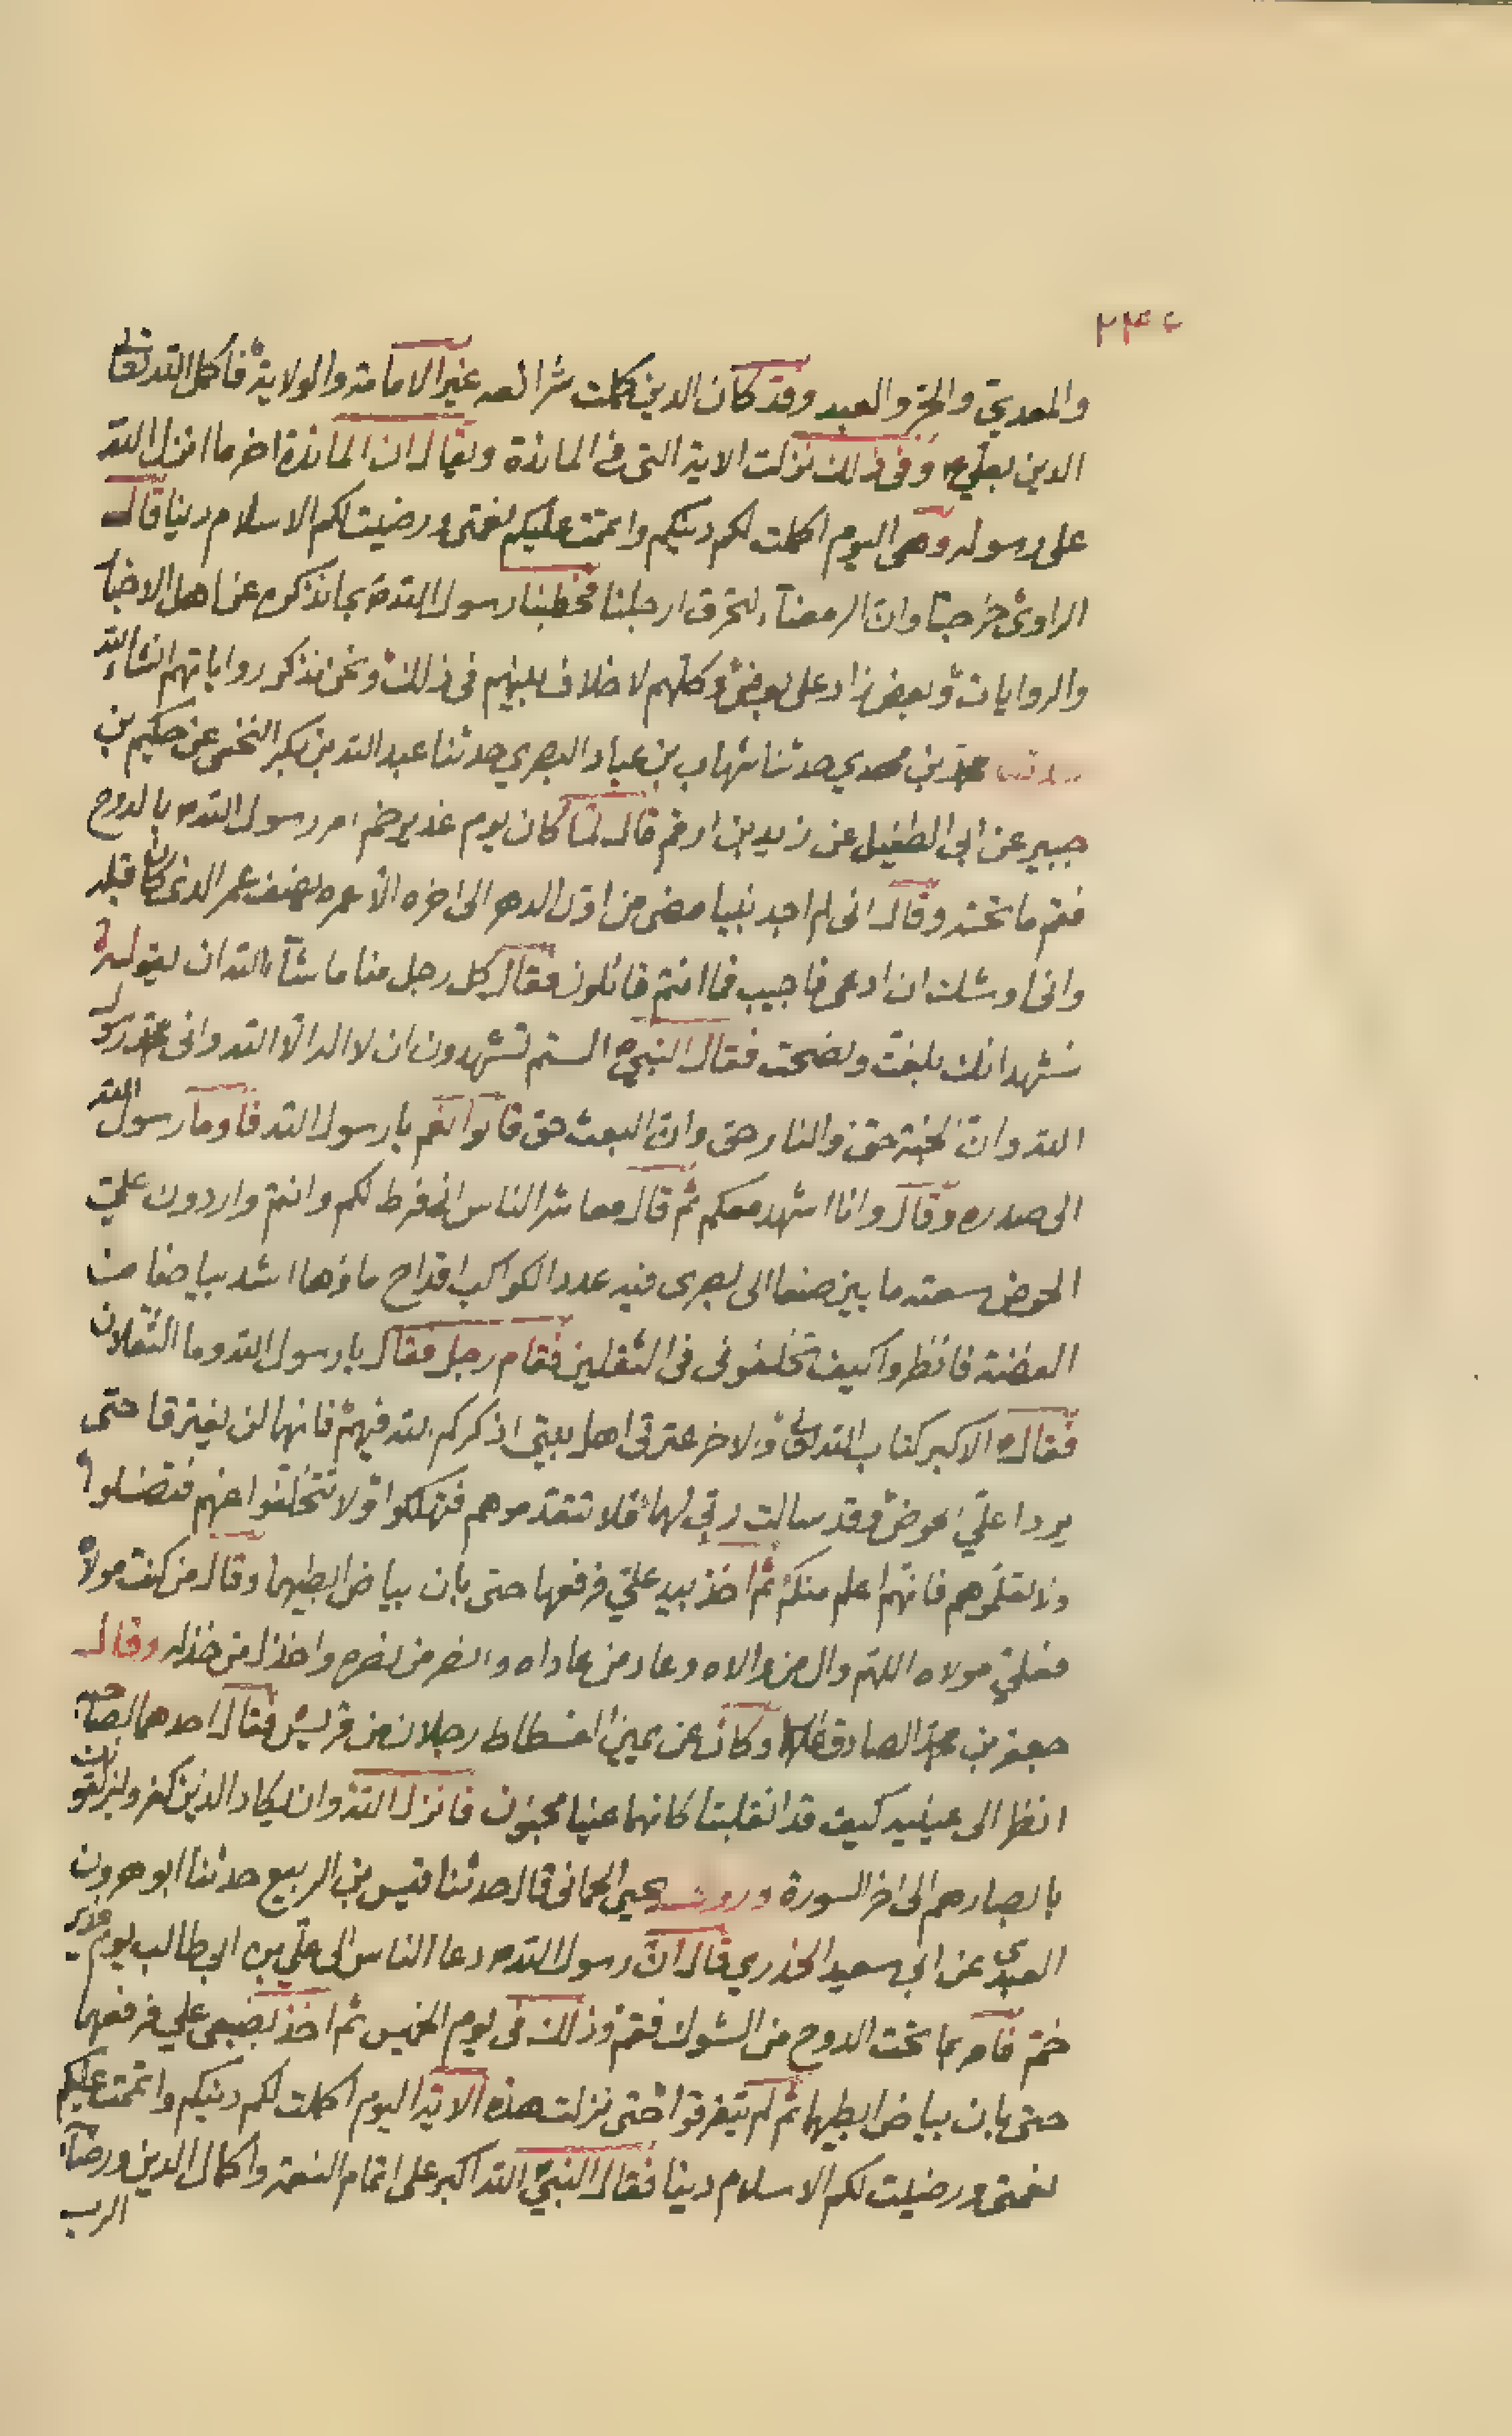 ٢٣٠
والمعدي والحر والعبد وقد كان الدين كملت شرائعه غير الامامة والولاية فاكمل الله تعالى
الدين بعلي وفي ذلك نزلت الاية التي في المائدة ويقال ان المائدة اخر ما انزل الله
على رسوله وهي اليوم اكملت لكم دينكم واتممت عليكم نعمتي ورضيت لكم الاسلام دينا قال
الراوي خرجنا وان الرمضاء لتحرق ارجلنا فخطبنا رسول الله ص بما نذكره عن اهل الاخبار
والروايات وبعض زاد على بعض وكلهم لا خلاف بينهم في ذلك ونحن نذكر رواياتهم انشاء الله
محمد بن مهدي حدثنا شهاب بن عباد البصري حدثنا عبد الله بن بكير النخعي عن حكيم بن
جبير عن ابي الطفيل عن زيد بن ارقم قال لما كان يوم غدير خم امر رسول الله ص بالدوح
فقم ما تحته وقال اني لم اجد نبيا مضى من اول الدهر الى اخره الا عمره نصف عمر الذي كان قبله
واني اوشك ان ادعى فاجيب فما انتم قائلون فقال كل رجل منا ما شاء الله ان يقوله
نشهد انك بلغت ونصحت فقال النبي ص الستم تشهدون ان لا اله الا الله واني محمد رسول
الله وان الجنة حق والنار حق وان البعث حق قالوا نعم يا رسول الله فاوما رسول الله
الى صدره وقال وانا اشهد معكم ثم قال معاشر الناس اني فرط لكم وانتم واردون علي
الحوض سعته ما بين صنعا الى بصرى فيه عدد الكواكب اقداح ماؤها اشد بياضا من
الفضة فانظروا كيف تخلفوني في الثقلين فقام رجل فقال يا رسول الله وما الثقلان
فقال ص الاكبر كتاب الله تعالى والاخر عترتي اهل بيتي اذكركم الله فيهم فانهما لن يفترقا حتى
يردا علي الحوض وقد سالت ربي لهما فلا تتقدموهم فتهلكوا ولا تتخلفوا عنهم فتضلوا
ولا تعلموهم فانهم اعلم منكم ثم اخذ بيد علي فرفعها حتى بان بياض ابطيهما وقال من كنت مولاه
فعلي مولاه اللهم وال من والاه وعاد من عاداه وانصر من نصره واخذل من خذله وقال
جعفر بن محمد الصادق وكان عن يمين الفسطاط رجلان من قريش فقال احدهما لصاحبه
انظر الى عينيه كيف قد انقلبتا كانهما عينا مجنون فانزل الله وان يكاد الذين كفروا ليزلقونك
بابصارهم الى اخر السورة وروى يحيى الحماني قال حدثنا قيس بن الربيع حدثنا ابو هرون
العبدي عن ابي سعيد الخدري قال ان رسول الله ص دعا الناس الى علي بن ابي طالب يوم غدير
خم فامر بما تحت الدوح من الشوك فقم وذلك في يوم الخميس ثم اخذ بضبعي علي فرفعهما
حتى بان بياض ابطيهما ثم لم يتفرقوا حتى نزلت هذه الاية اليوم اكملت لكم دينكم واتممت عليكم
نعمتي ورضيت لكم الاسلام دينا فقال النبي ص الله اكبر على اتمام النعمة واكمال الدين ورضاء
الرب